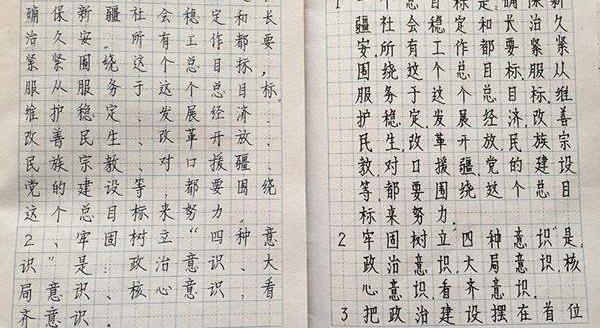 确保新疆社会稳定和长
治久安。所有工作都要
紧紧围绕这个总目标，
服从服务于这个总目标。
维护稳定、发展经济、
改善民生、改革开放、
民族宗教、对口援疆、
党的建设等，都要围绕
这个总目标来努力。
2、牢固树立“四种意
识”是政治意识，大
局意识、核心意识，看
齐意识。
1一个总目标是:确保新
疆社会稳定和长治久
安,所有工作都要紧紧
围绕这个总目标,服从
服务于这个总目标.维
护稳定,发展经济,改善
民生,改革开放,民族宗
教,对口援疆,党的建设
等,都要围绕这个总目
标来努力.
2牢固树立“四种意识”是,
政治意识,大局意识,核
心意识,看齐意识.
3把政治建设摆在首位